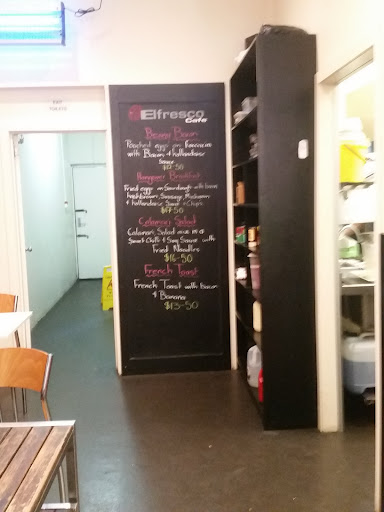 EXIT
TOILETS
Elfresco
Cafe
Benny Bacon
Poached eggs on Foccacia
with Bacon & hollandaise
Sauce
$17-50
Hangover Breakfast
Fried eggs on Sourdough with bacon
hashbrown, Sausage, Mushroom
& hollandaise Sauce & Chips
$17-50
Calamari Salad
Calamari Salad mix in a
Sweet Chilli & Soy Sauce with
Fried Noodles
$16-50
French Toast
French Toast with Bacon
& Banana
$13-50